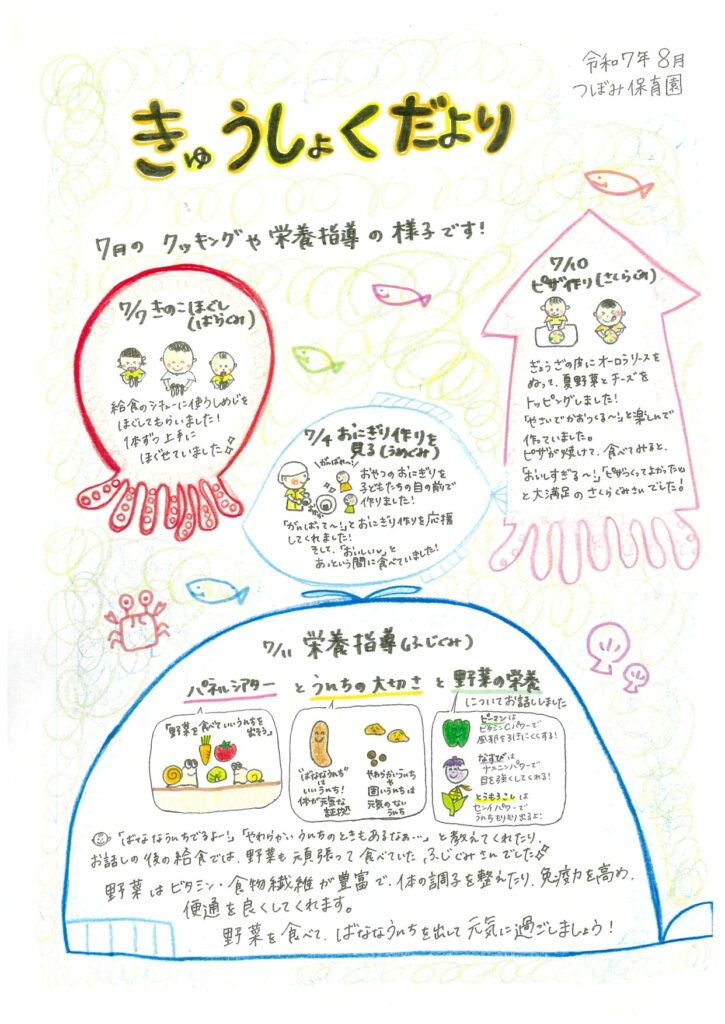 令和7年8月
つぼみ保育園
きゅうしょくだより
7月の クッキングや栄養指導の様子です!
7/7 きのこほぐし
(ばらぐみ)
給食のシチューに使うしめじを
ほぐしてもらいました!
1本ずつ上手に
ほぐせていました
7/10
ピザ作り(さくらぐみ)
ぎょうざの皮にオーロラソースを
ぬって、夏野菜とチーズを
トッピングしました!
「やさいでかおつくる〜」と楽しんで
作っていました。
ピザが焼けて、食べてみると、
「おいしすぎる〜!」「ピザつくってよかった」
と大満足のさくらぐみさんでした!
7/4 おにぎり作りを
見る(うめぐみ)
がんばれ〜!
おやつのおにぎりを
子どもたちの目の前で
作りました!
「がんばって〜!」とおにぎり作りを応援
してくれました!
そして、「おいしい」と
あっという間に食べていました!
7/11 栄養指導(ふじぐみ)
パネルシアター と うんちの大切さ と 野菜の栄養
についてお話ししました
「野菜を食べていいうんちを
出そう」
"ばななうんち"
は
いいうんち!
体が元気な
証拠
やわらかいうんち
や
固いうんちは
元気のない
うんち
ピーマンは
ビタミンCパワーで
風邪を引きにくくする!
なすびは
ナスニンパワーで
目を強くしてくれる!
とうもろこしは
センイパワーで
うんちもりもり出るよ!
「ばななうんちでるよー!」「やわらかいうんちのときもあるなぁ…」と教えてくれたり、
お話しの後の給食では、野菜も頑張って食べていたふじぐみさんでした
野菜はビタミン・食物繊維が豊富で、体の調子を整えたり、免疫力を高め、
便通を良くしてくれます。
野菜を食べて、ばななうんちを出して元気に過ごしましょう!